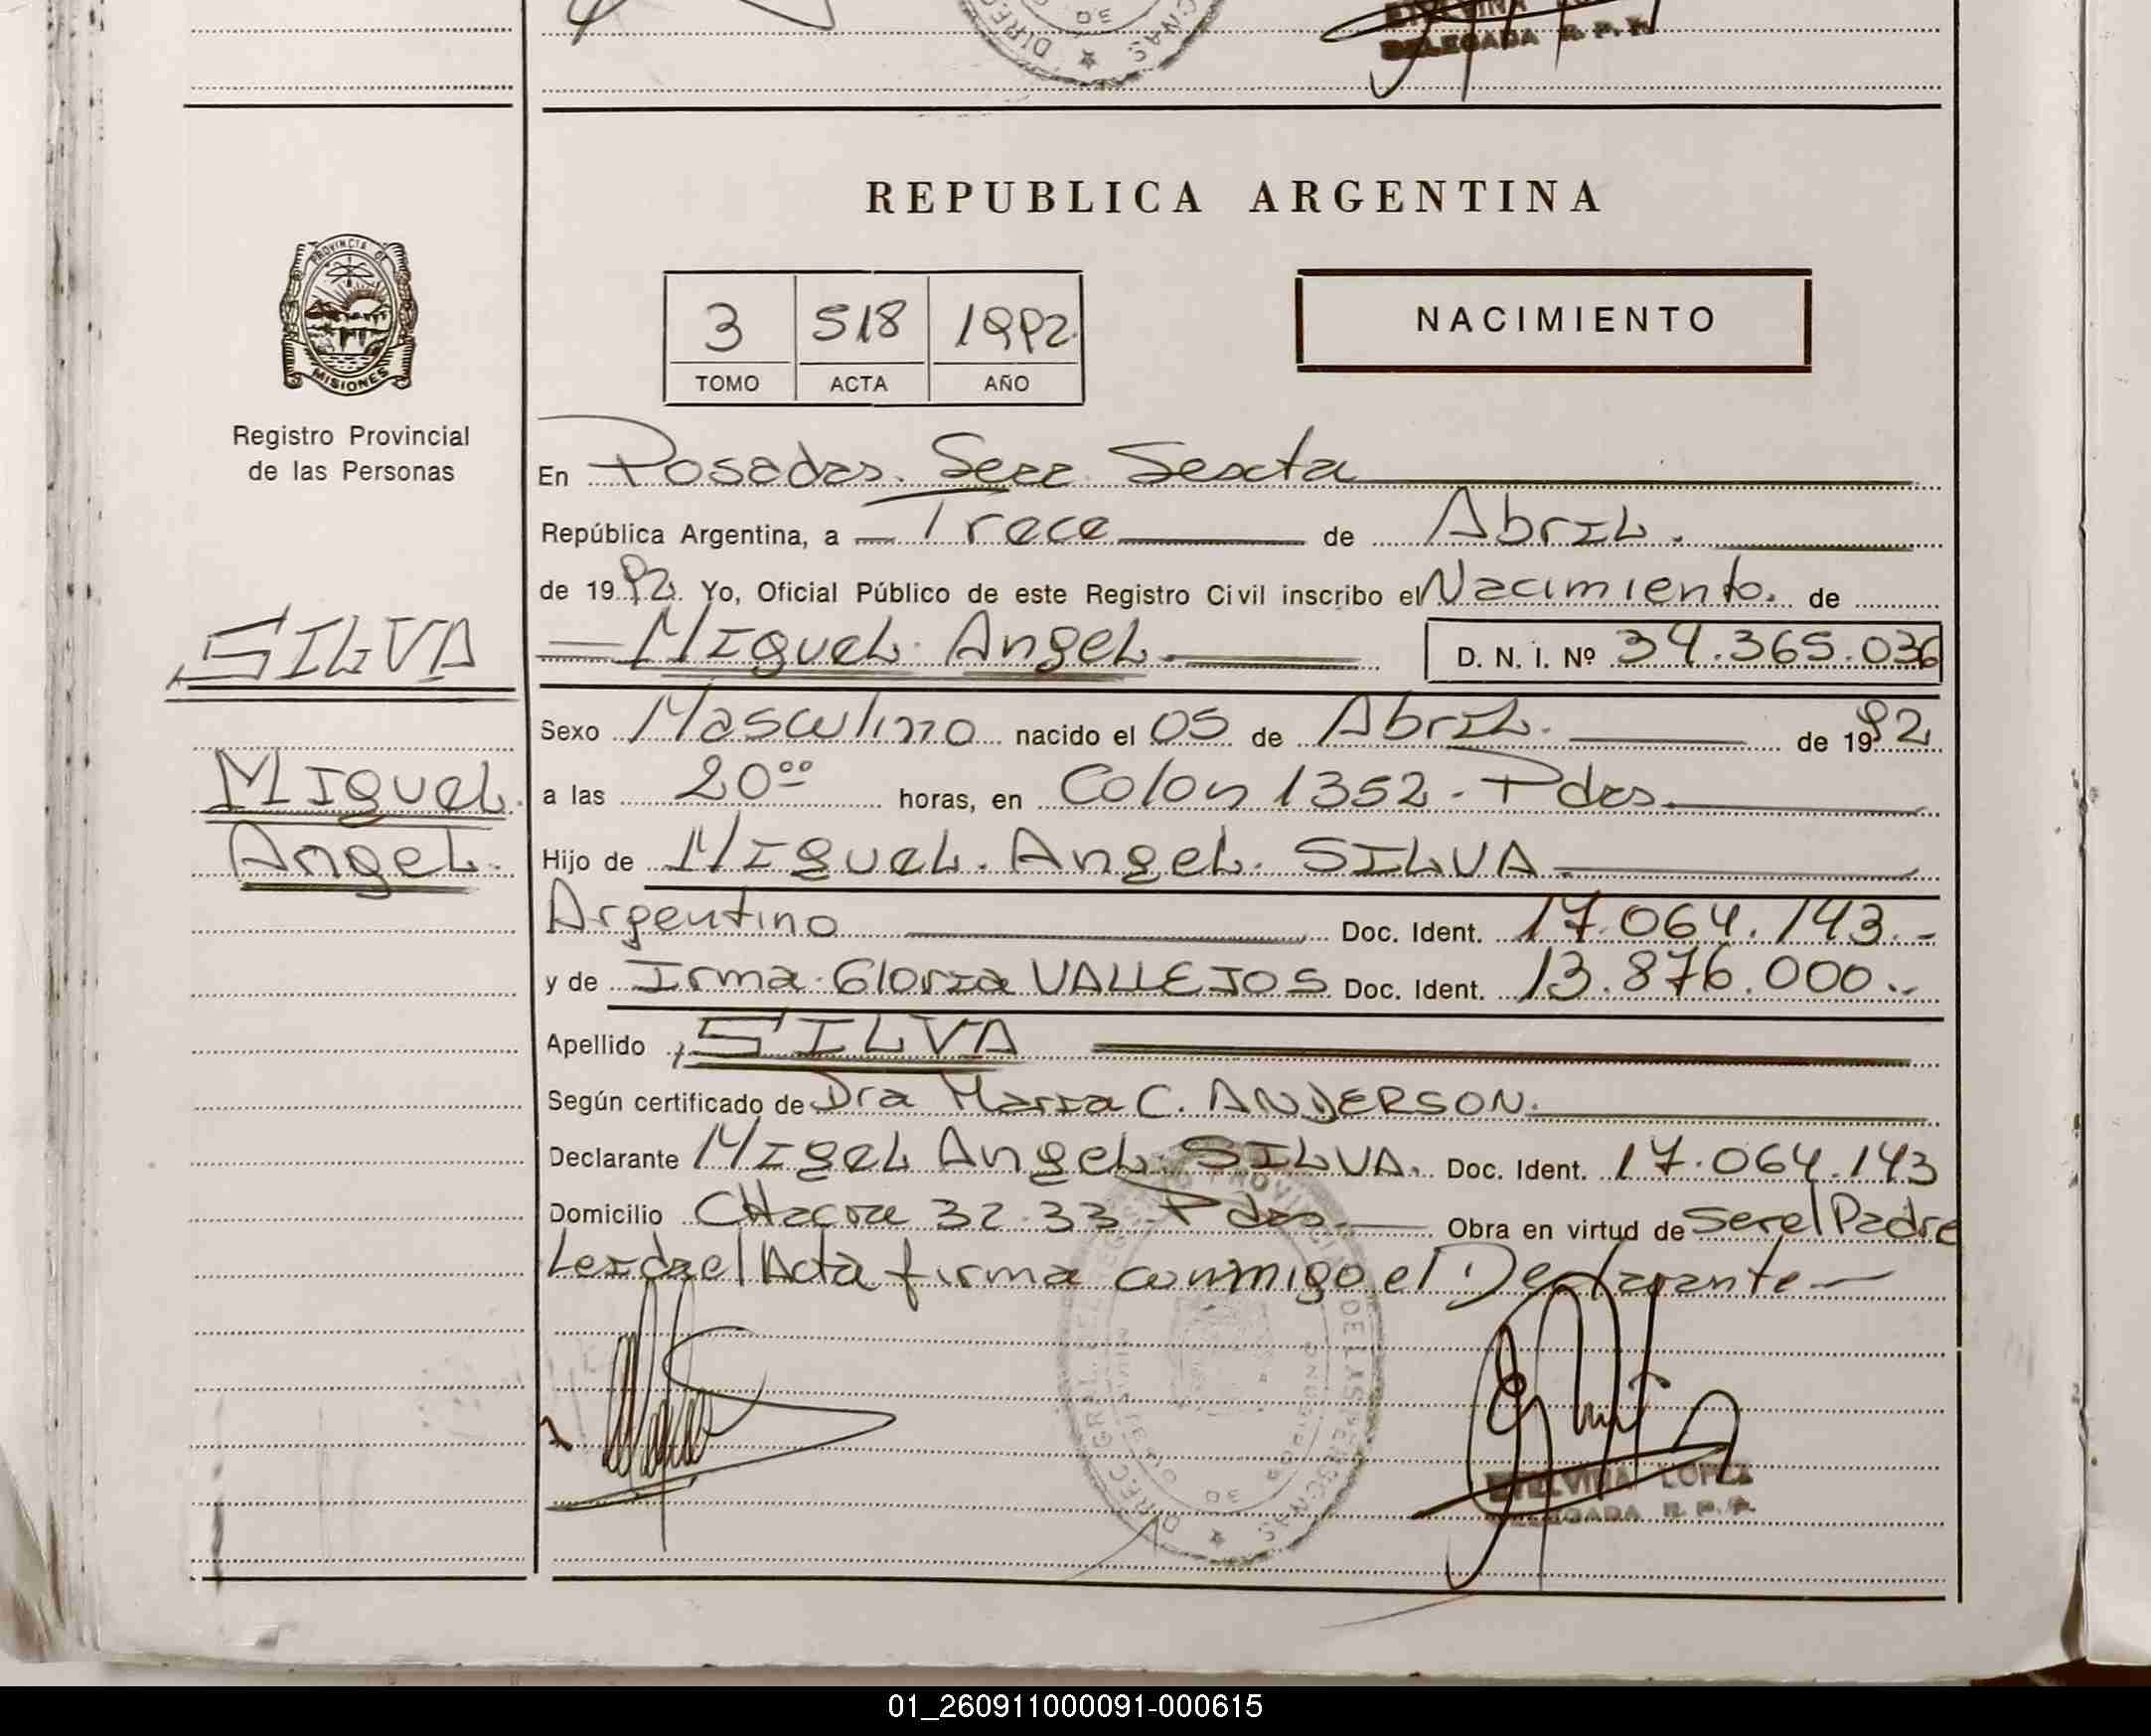 DELEGADA R. P. P.
REPUBLICA ARGENTINA
PROVINCIA DE
MISIONES
Registro Provincial
de las Personas
3 518 1992
TOMO ACTA AÑO
NACIMIENTO
En Posadas. Secc. Sexta
República Argentina, a Trece de Abril.
de 1992. Yo, Oficial Público de este Registro Civil inscribo el Nacimiento. de
SILVA
Miguel Angel D. N. I. Nº 34.365.036
Sexo Masculino nacido el 05 de Abril. de 1992
Miguel
a las 20⁰⁰ horas, en Colon 1352 - Pdas.
Angel.
Hijo de Miguel. Angel. SILVA.
Argentino Doc. Ident. 17.064.143.-
y de Irma Gloria VALLEJOS Doc. Ident. 13.876.000.-
Apellido SILVA
Según certificado de Dra Maria C. ANDERSON.
Declarante Migel Angel SILVA. Doc. Ident. 17.064.143
Domicilio CHacra 32-33 Pdas. Obra en virtud de ser el Padre
Leida el Acta firma conmigo el Declarante
ETELVINA LOPEZ
DELEGADA R. P. P.
01_260911000091-000615